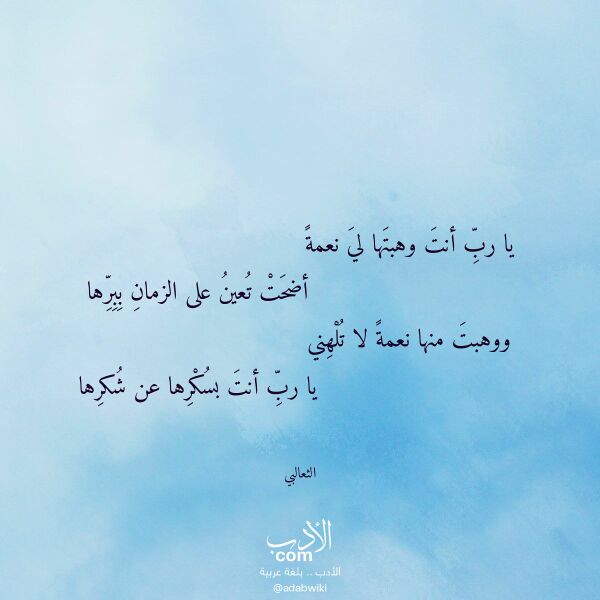 يا ربِّ أنتَ وهبتَها ليَ نعمةً
أضحَتْ تُعينُ على الزمانِ بِبِرِّها
ووهبتَ منها نعمةً لا تُلْهِني
يا ربِّ أنتَ بسُكْرِها عن شُكرِها
الثعالبي
الأدب
com
الأدب .. بلغة عربية
@adabwiki